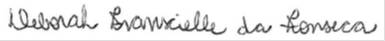 Deborah Franscielle da Fonseca